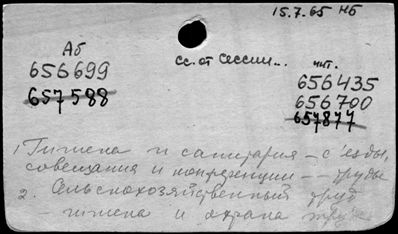 15.7.65 Нб
Аб
сс. от Сессии...
чит.
656699
657588
656435
656700
657877
1. Гигиена и санитария - съезды,
совещания и конференции - - труды
2. Сельскохозяйственный труд
- гигиена и охрана труда